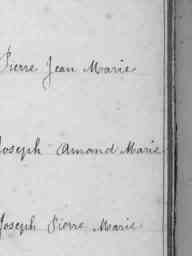 Pierre Jean Marie
Joseph Amand Marie
Joseph Pierre Marie